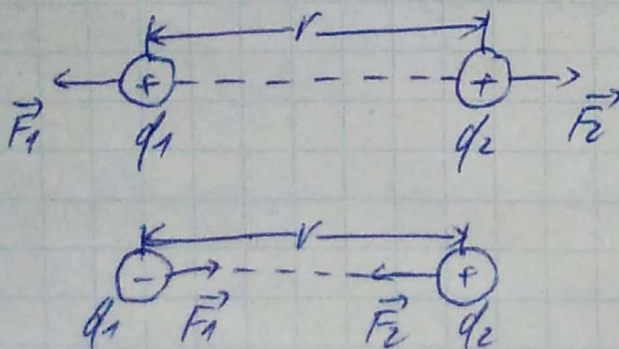 r
+ +
F₁ q₁ q₂ F₂
r
- +
q₁ F₁ F₂ q₂